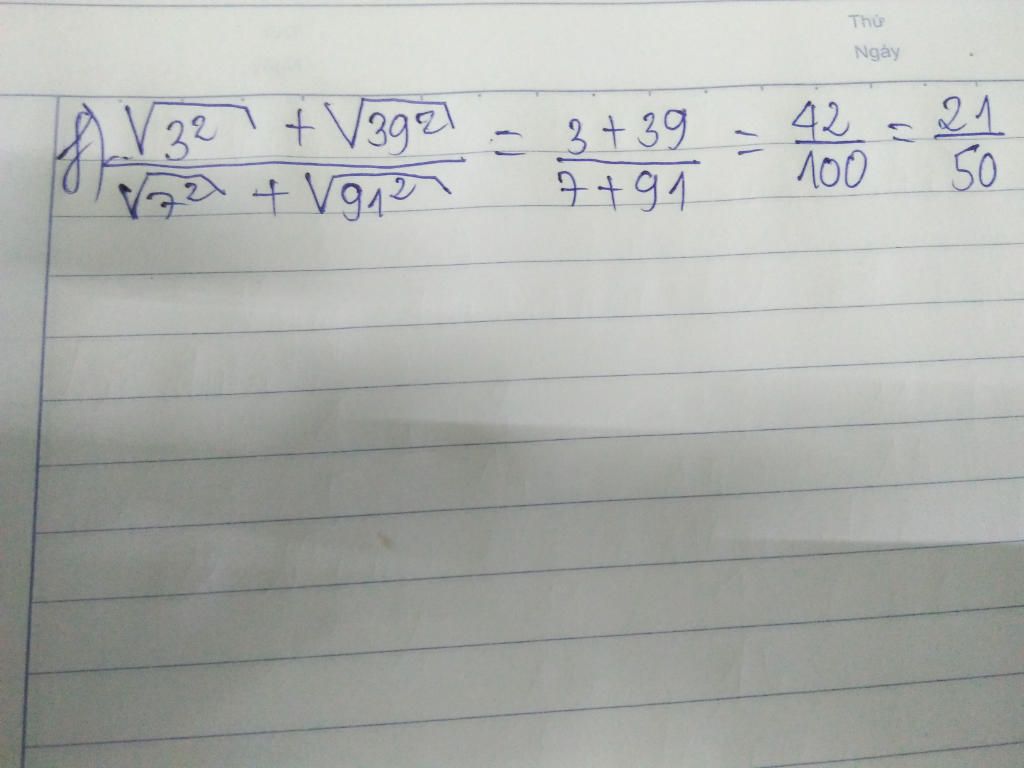 Thứ
Ngày
f) \frac{\sqrt{3^2} + \sqrt{39^2}}{\sqrt{7^2} + \sqrt{91^2}} = \frac{3 + 39}{7 + 91} = \frac{42}{100} = \frac{21}{50}